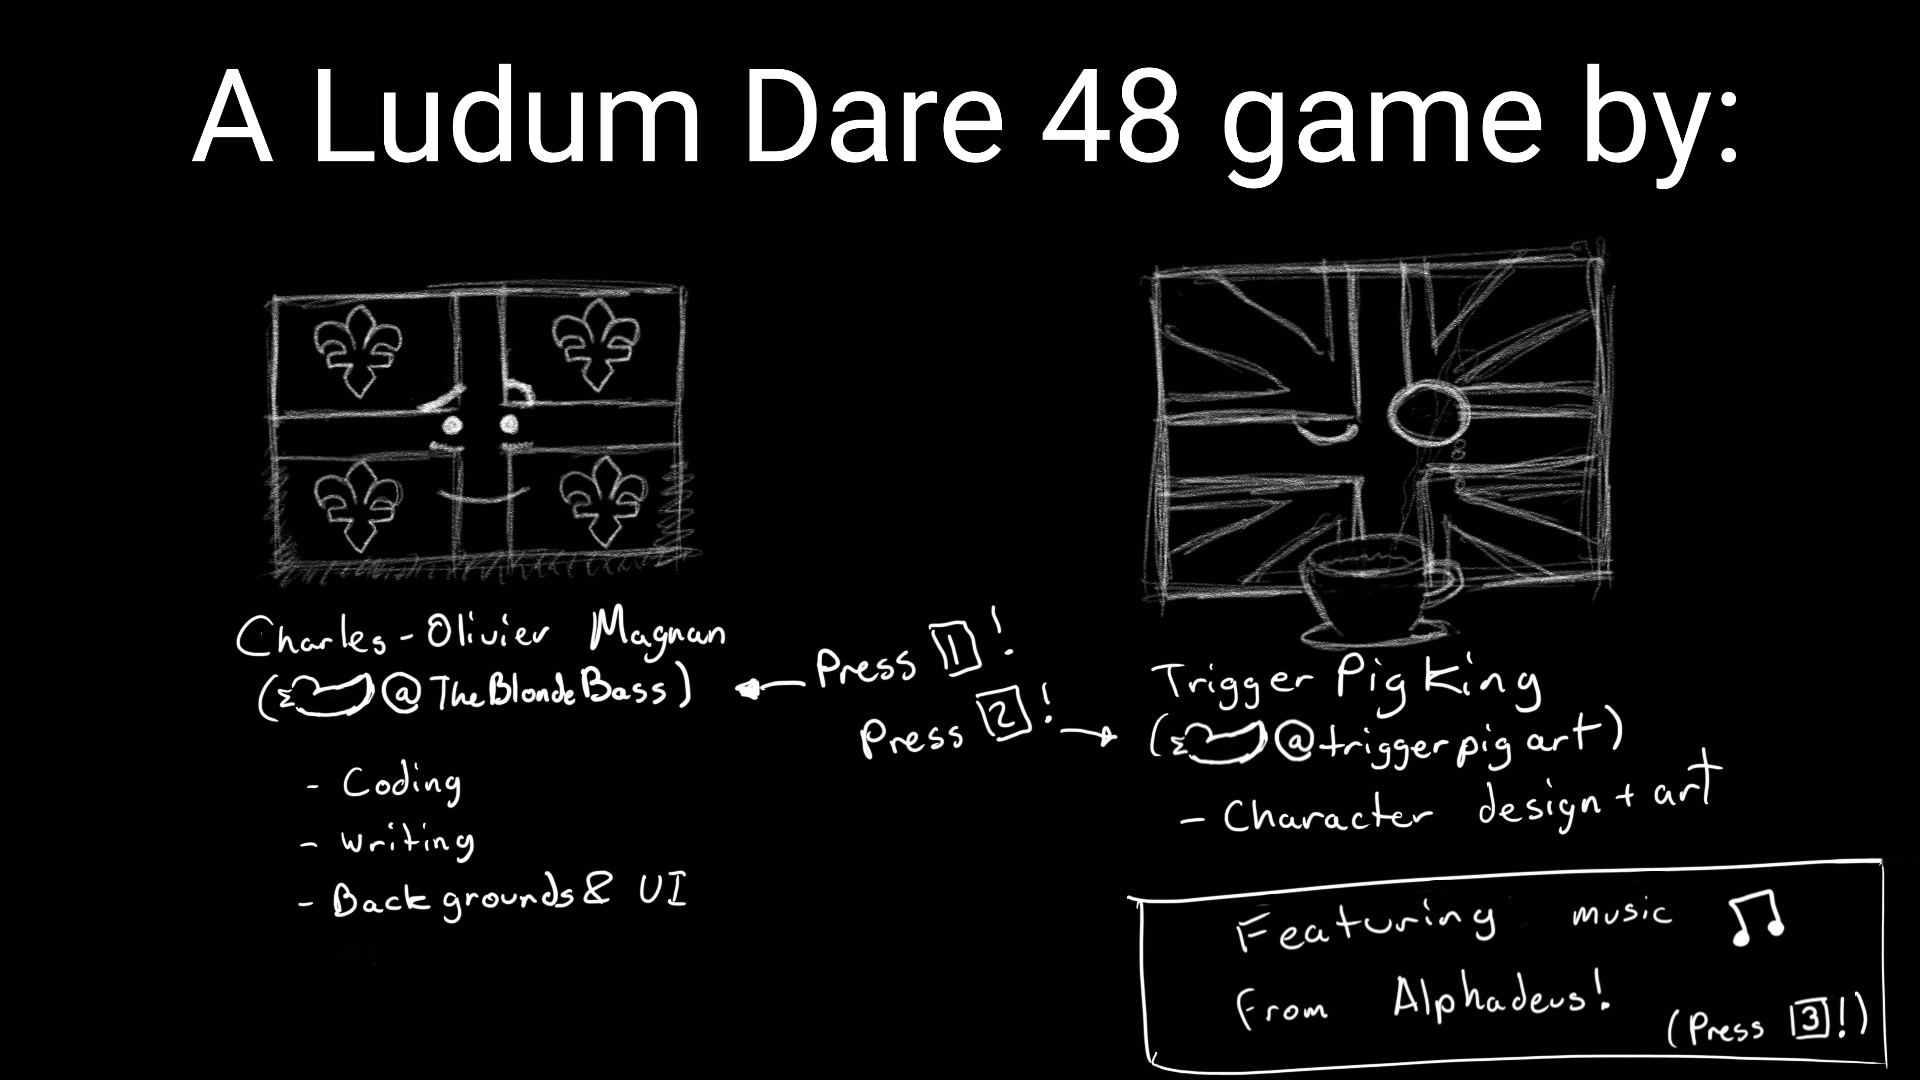 A Ludum Dare 48 game by:
Charles-Olivier Magnan
(@TheBlondeBass)
- Coding
- Writing
- Backgrounds & UI
Press 1!
Press 2!
Trigger Pig King
(@triggerpigart)
- Character design + art
Featuring music
From Alphadeus!
(Press 3!)